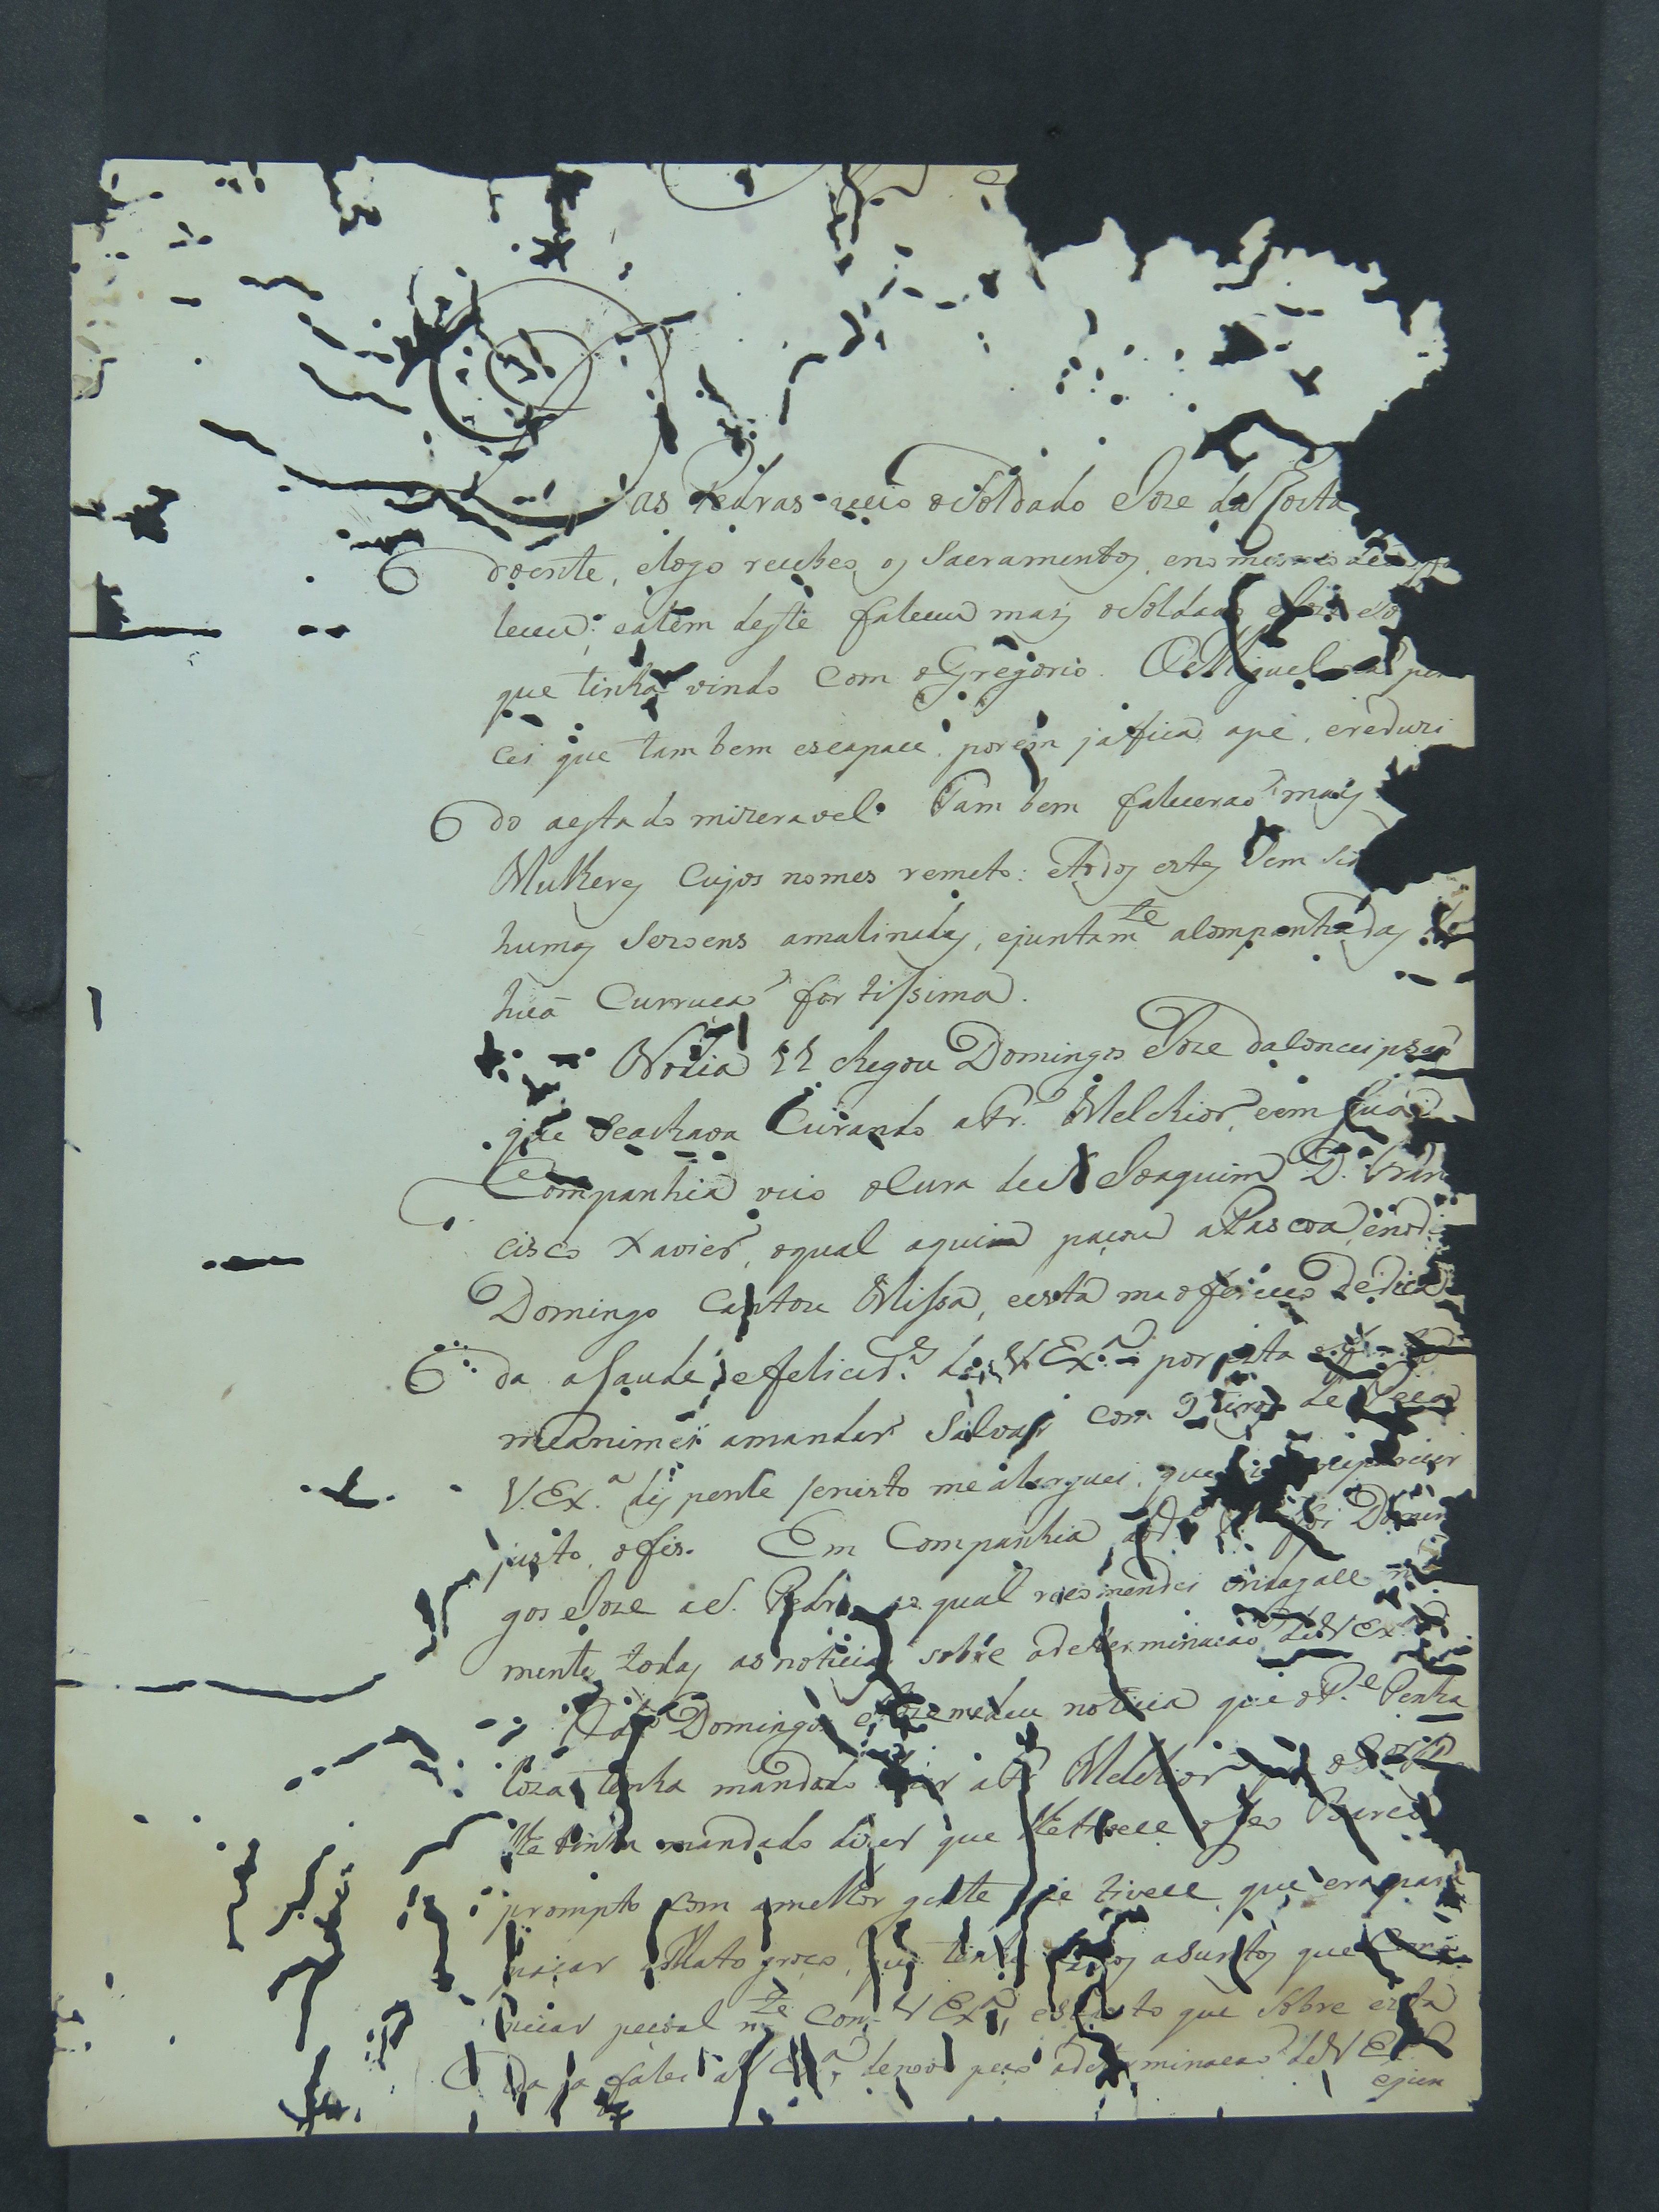 Das Pedras veio o Soldado Joze da Costa
doente, e logo recebeo os Sacramentos, e no mesmo
leceu; e alem deste faleceu mais o Soldado Joze
que tinha vindo com o Gregorio. O Miguel
cei que tam bem escapace, porem ja fica ape, e reduzi
do aestado mizeravel. Tam bem falecerao mais
Mulheres Cujos nomes remeto: etodos estes tem sid
humas Sezoens amalinadas, ejuntamte acompanhadas
huã Currucao fortissima.
No dia 22 chegou Domingos Joze da Conceipsao
que Seachava Curando a Fr. Melchior, e em Sua
Companhia veio o Cura de S. Joaquim D. Fran
cisco Xavier, o qual aquia paçou a Pascoa, eno di
Domingo Cantou Missa, e esta me ofereceo dedica
da a Saude, e felicide de V. Exa. por esta
me animei amandar Salvar com 9 tiros de Peça
V. Exa. dispence se nisto me alarguei, que
justo o fis. Em Companhia do foi Domin
gos Joze a S. Pedro ao qual recomendei indagace
mente todas as noticias sobre a determinacao de V Exa.
O do Domingos Joze me deu noticia que o Pe. Penha
loza tinha mandado a Fr. Melchior
lhe tinha mandado dizer que lhe tivece o seo Barco
prompto com a melhor gente que tivece, que era para
paçar a Mato groço, que tinha asuntos que
niciar peçoal mte com V Exa, e suposto que Sobre esta
ida ja falei a V Exa, de novo peço a determinacao de V Exa
ejun